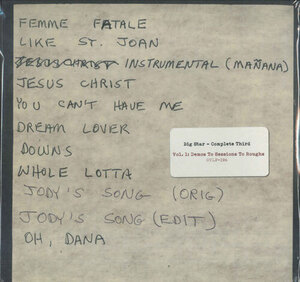 FEMME FATALE
LIKE ST. JOAN
JESUS CHRIST INSTRUMENTAL (MAÑANA)
JESUS CHRIST
YOU CAN'T HAVE ME
DREAM LOVER
DOWNS
Big Star - Complete Third
Vol. 1: Demos To Sessions To Roughs
WHOLE LOTTA
JODY'S SONG (ORIG)
JODY'S SONG (EDIT)
OH, DANA